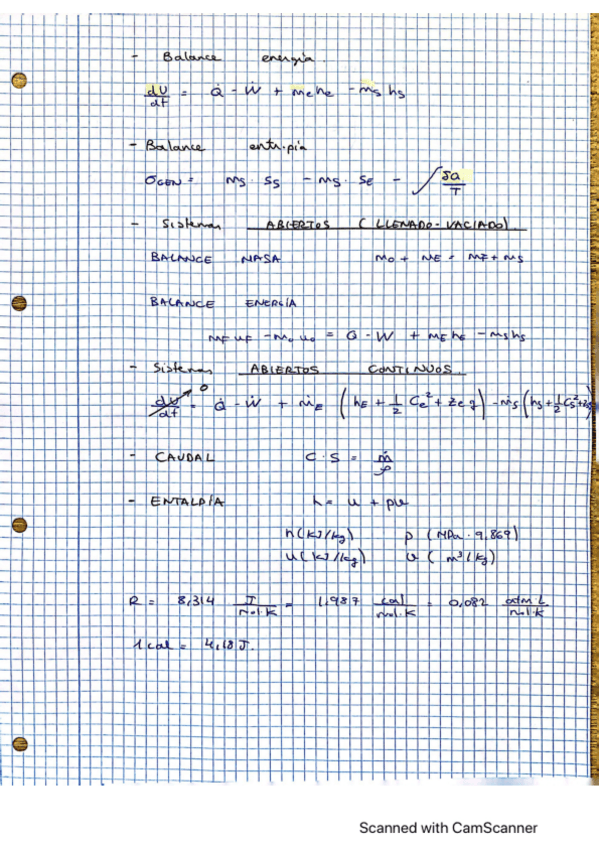 - Balance energía
dU/dt = Q̇ - Ẇ + ṁe he - ṁs hs
- Balance entropía
σGEN = ms · ss - ms · sE - ∫ δQ/T
- Sistemas ABIERTOS (LLENADO-VACIADO).
BALANCE MASA m0 + mE = mF + ms
BALANCE ENERGÍA
mF uF - m0 u0 = Q - W + mE hE - ms hs
- Sistemas ABIERTOS CONTINUOS.
dU/dt 0 = Q̇ - Ẇ + ṁE (hE + 1/2 Ce² + ze g) - ṁs (hs + 1/2 Cs² + zs
- CAUDAL C · S = ṁ/ρ
- ENTALPÍA h = u + pv
h (kJ/kg) p (MPa · 9,869)
u (kJ/kg) v (m³/kg)
R = 8,314 J/mol·K = 1,987 cal/mol·K = 0,082 atm·L/mol·K
1 cal = 4,18 J.
Scanned with CamScanner